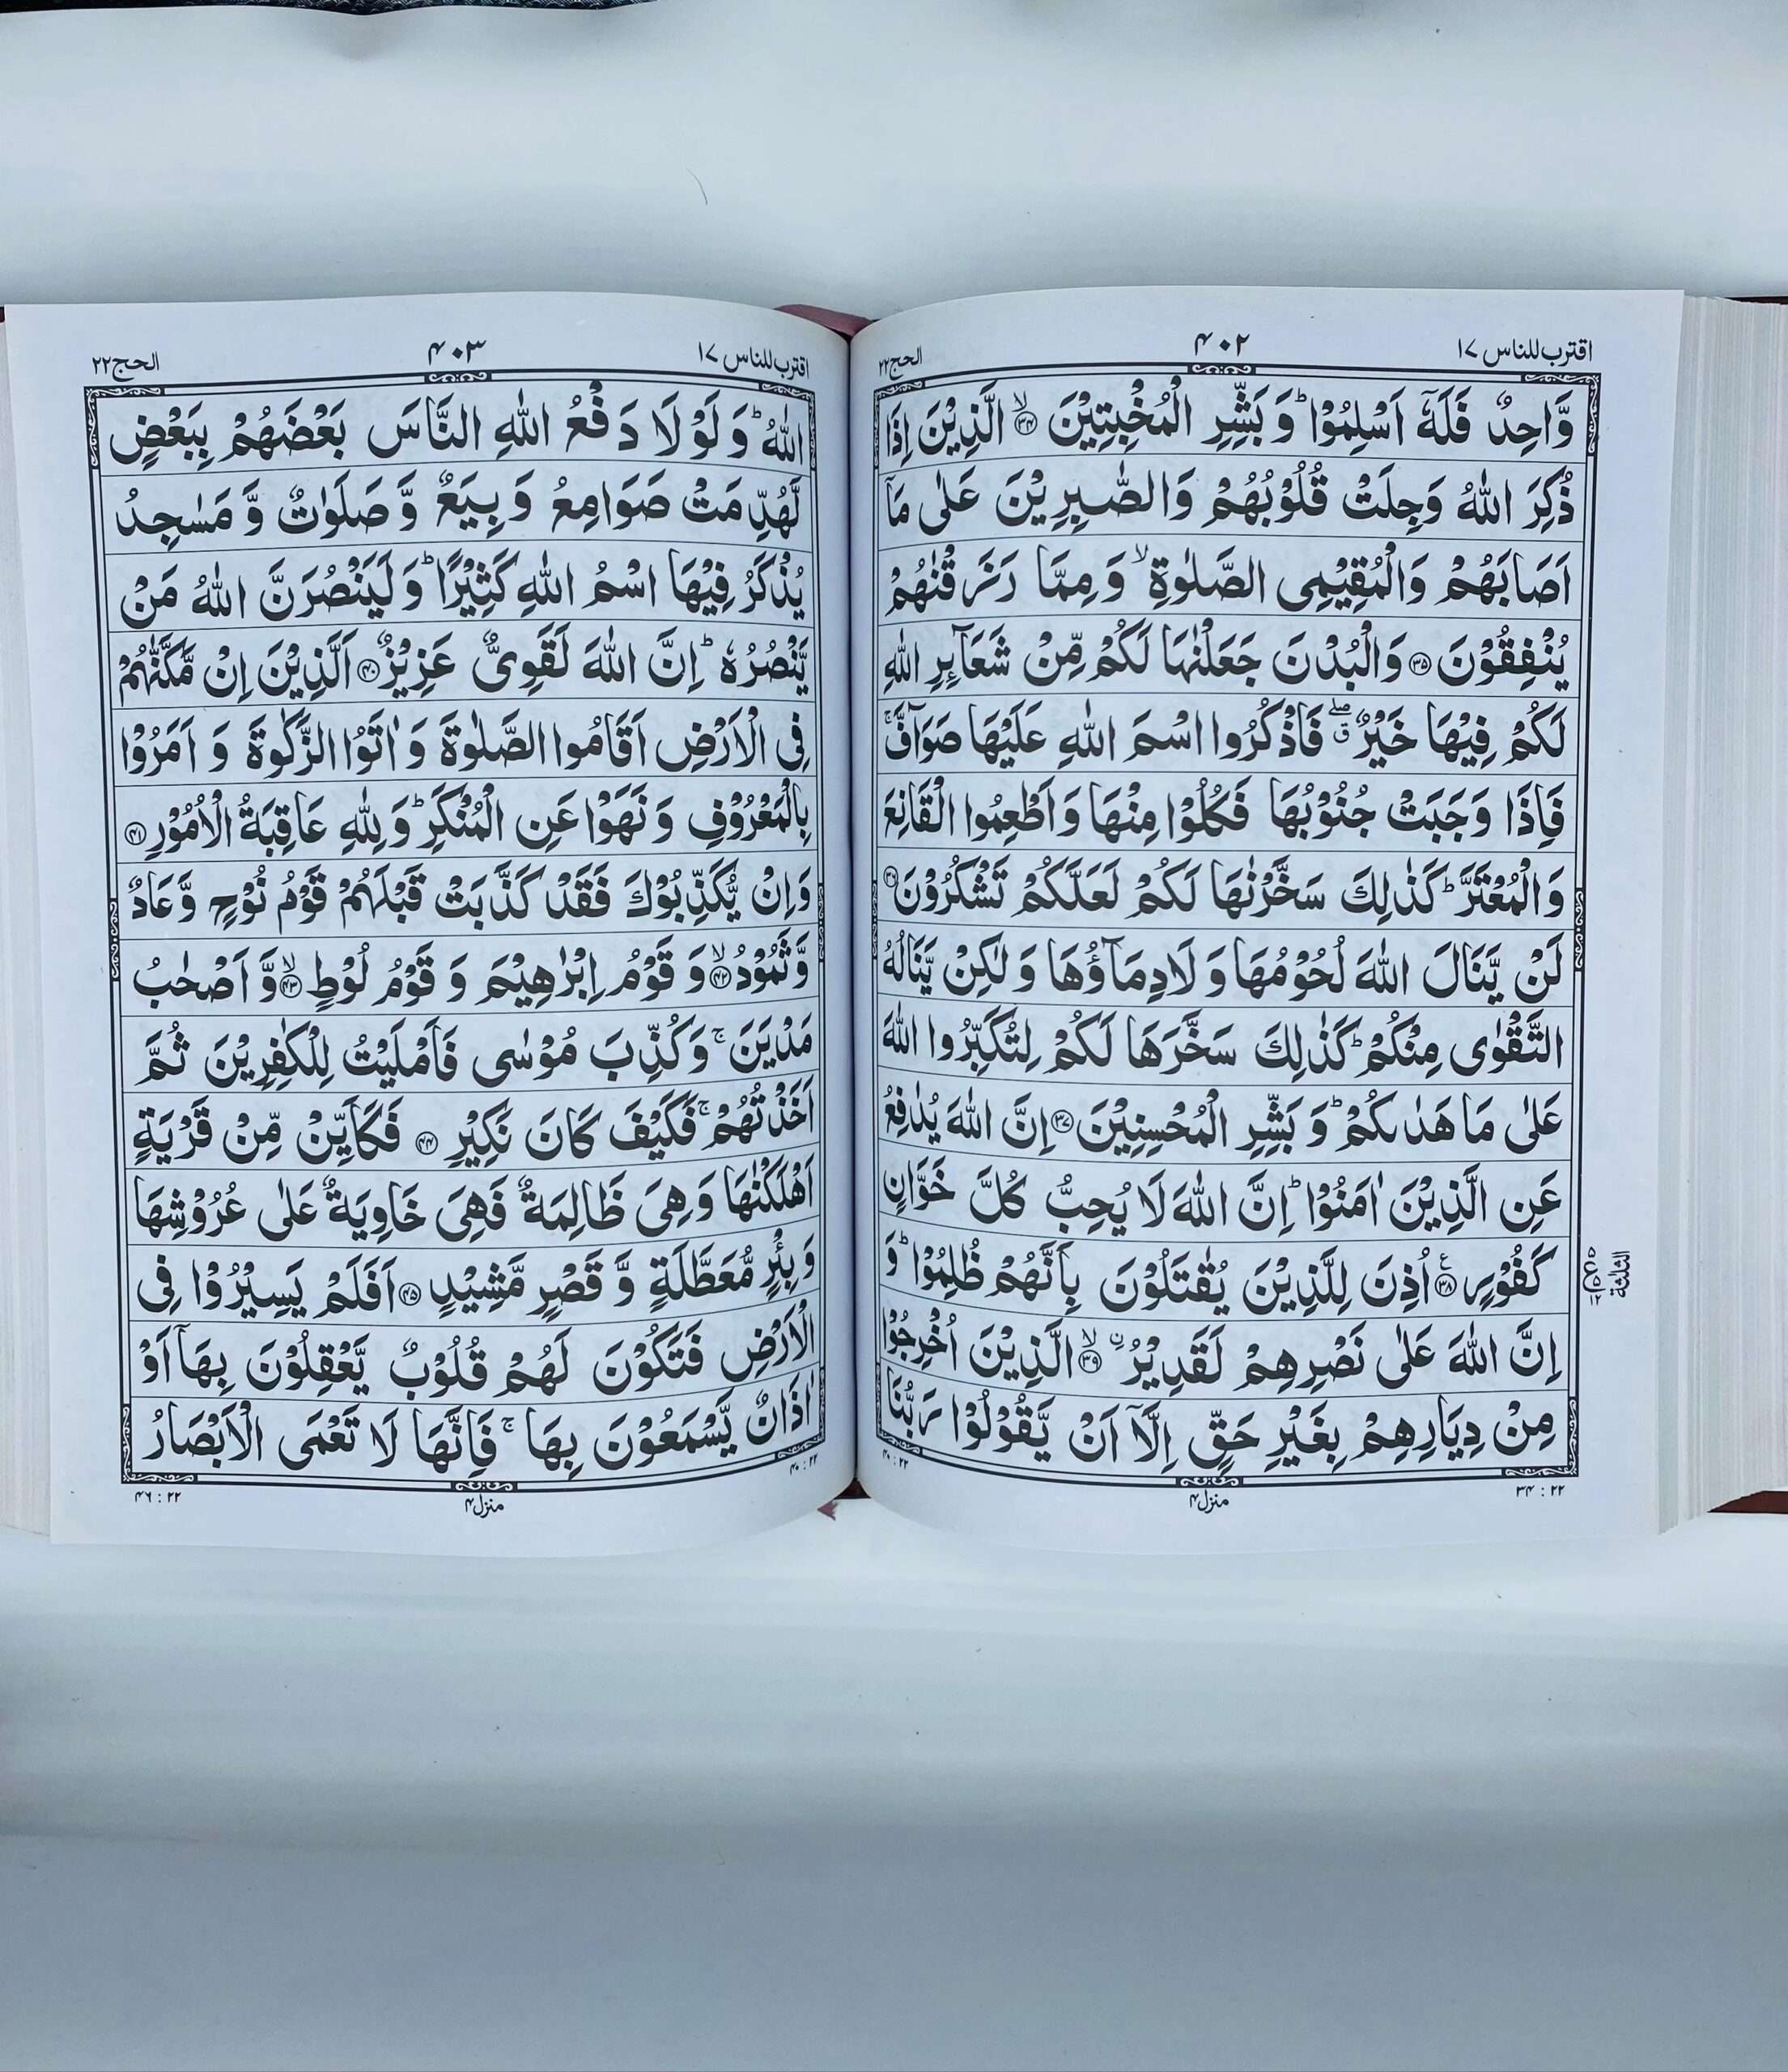 اقترب للناس ۱۷
۴۰۲
الحج ۲۲
وَّاحِدٌ فَلَهٗۤ اَسْلِمُوْا ؕ وَ بَشِّرِ الْمُخْبِتِيْنَ ۙ‏﴿۳۴﴾ الَّذِيْنَ اِذَا
ذُكِرَ اللّٰهُ وَجِلَتْ قُلُوْبُهُمْ وَالصّٰبِرِيْنَ عَلٰى مَاۤ
اَصَابَهُمْ وَالْمُقِيْمِى الصَّلٰوةِ ۙ وَ مِمَّا رَزَقْنٰهُمْ
يُنْفِقُوْنَ ﴿۳۵﴾ وَالْبُدْنَ جَعَلْنٰهَا لَكُمْ مِّنْ شَعَآئِرِ اللّٰهِ
لَكُمْ فِيْهَا خَيْرٌ ۖۗ فَاذْكُرُوا اسْمَ اللّٰهِ عَلَيْهَا صَوَآفَّ ۚ
فَاِذَا وَجَبَتْ جُنُوْبُهَا فَكُلُوْا مِنْهَا وَ اَطْعِمُوا الْقَانِعَ
وَ الْمُعْتَرَّ ؕ كَذٰلِكَ سَخَّرْنٰهَا لَكُمْ لَعَلَّكُمْ تَشْكُرُوْنَ ﴿۳۶﴾
لَنْ يَّنَالَ اللّٰهَ لُحُوْمُهَا وَ لَا دِمَآؤُهَا وَ لٰكِنْ يَّنَالُهُ
التَّقْوٰى مِنْكُمْ ؕ كَذٰلِكَ سَخَّرَهَا لَكُمْ لِتُكَبِّرُوا اللّٰهَ
عَلٰى مَا هَدٰىكُمْ ؕ وَ بَشِّرِ الْمُحْسِنِيْنَ ﴿۳۷﴾ اِنَّ اللّٰهَ يُدٰفِعُ
عَنِ الَّذِيْنَ اٰمَنُوْا ؕ اِنَّ اللّٰهَ لَا يُحِبُّ كُلَّ خَوَّانٍ
كَفُوْرٍ ﴿۳۸﴾ اُذِنَ لِلَّذِيْنَ يُقٰتَلُوْنَ بِاَنَّهُمْ ظُلِمُوْا ؕ وَ
اِنَّ اللّٰهَ عَلٰى نَصْرِهِمْ لَقَدِيْرُ ۙ﴿۳۹﴾ ۨالَّذِيْنَ اُخْرِجُوْا
مِنْ دِيَارِهِمْ بِغَيْرِ حَقٍّ اِلَّاۤ اَنْ يَّقُوْلُوْا رَبُّنَا
ع
۵
۱۲
الثلثة
۲۲ : ۳۴
منزل ۴
۲۲ : ۴۰
اقترب للناس ۱۷
۴۰۳
الحج ۲۲
اللّٰهُ ؕ وَ لَوْ لَا دَفْعُ اللّٰهِ النَّاسَ بَعْضَهُمْ بِبَعْضٍ
لَّهُدِّمَتْ صَوَامِعُ وَ بِيَعٌ وَّ صَلَوٰتٌ وَّ مَسٰجِدُ
يُذْكَرُ فِيْهَا اسْمُ اللّٰهِ كَثِيْرًا ؕ وَ لَيَنْصُرَنَّ اللّٰهُ مَنْ
يَّنْصُرُهٗ ؕ اِنَّ اللّٰهَ لَقَوِىٌّ عَزِيْزٌ ﴿۴۰﴾ اَلَّذِيْنَ اِنْ مَّكَّنّٰهُمْ
فِى الْاَرْضِ اَقَامُوا الصَّلٰوةَ وَ اٰتَوُا الزَّكٰوةَ وَ اَمَرُوْا
بِالْمَعْرُوْفِ وَ نَهَوْا عَنِ الْمُنْكَرِ ؕ وَ لِلّٰهِ عَاقِبَةُ الْاُمُوْرِ ﴿۴۱﴾
وَاِنْ يُّكَذِّبُوْكَ فَقَدْ كَذَّبَتْ قَبْلَهُمْ قَوْمُ نُوْحٍ وَّ عَادٌ
وَّ ثَمُوْدُ ۙ﴿۴۲﴾ وَ قَوْمُ اِبْرٰهِيْمَ وَ قَوْمُ لُوْطٍ ۙ﴿۴۳﴾ وَّ اَصْحٰبُ
مَدْيَنَ ۚ وَ كُذِّبَ مُوْسٰى فَاَمْلَيْتُ لِلْكٰفِرِيْنَ ثُمَّ
اَخَذْتُهُمْ ۚ فَكَيْفَ كَانَ نَكِيْرِ ﴿۴۴﴾ فَكَاَيِّنْ مِّنْ قَرْيَةٍ
اَهْلَكْنٰهَا وَ هِىَ ظَالِمَةٌ فَهِىَ خَاوِيَةٌ عَلٰى عُرُوْشِهَا
وَ بِئْرٍ مُّعَطَّلَةٍ وَّ قَصْرٍ مَّشِيْدٍ ﴿۴۵﴾ اَفَلَمْ يَسِيْرُوْا فِى
الْاَرْضِ فَتَكُوْنَ لَهُمْ قُلُوْبٌ يَّعْقِلُوْنَ بِهَاۤ اَوْ
اٰذَانٌ يَّسْمَعُوْنَ بِهَا ۚ فَاِنَّهَا لَا تَعْمَى الْاَبْصَارُ
۲۲ : ۴۰
منزل ۴
۲۲ : ۴۶